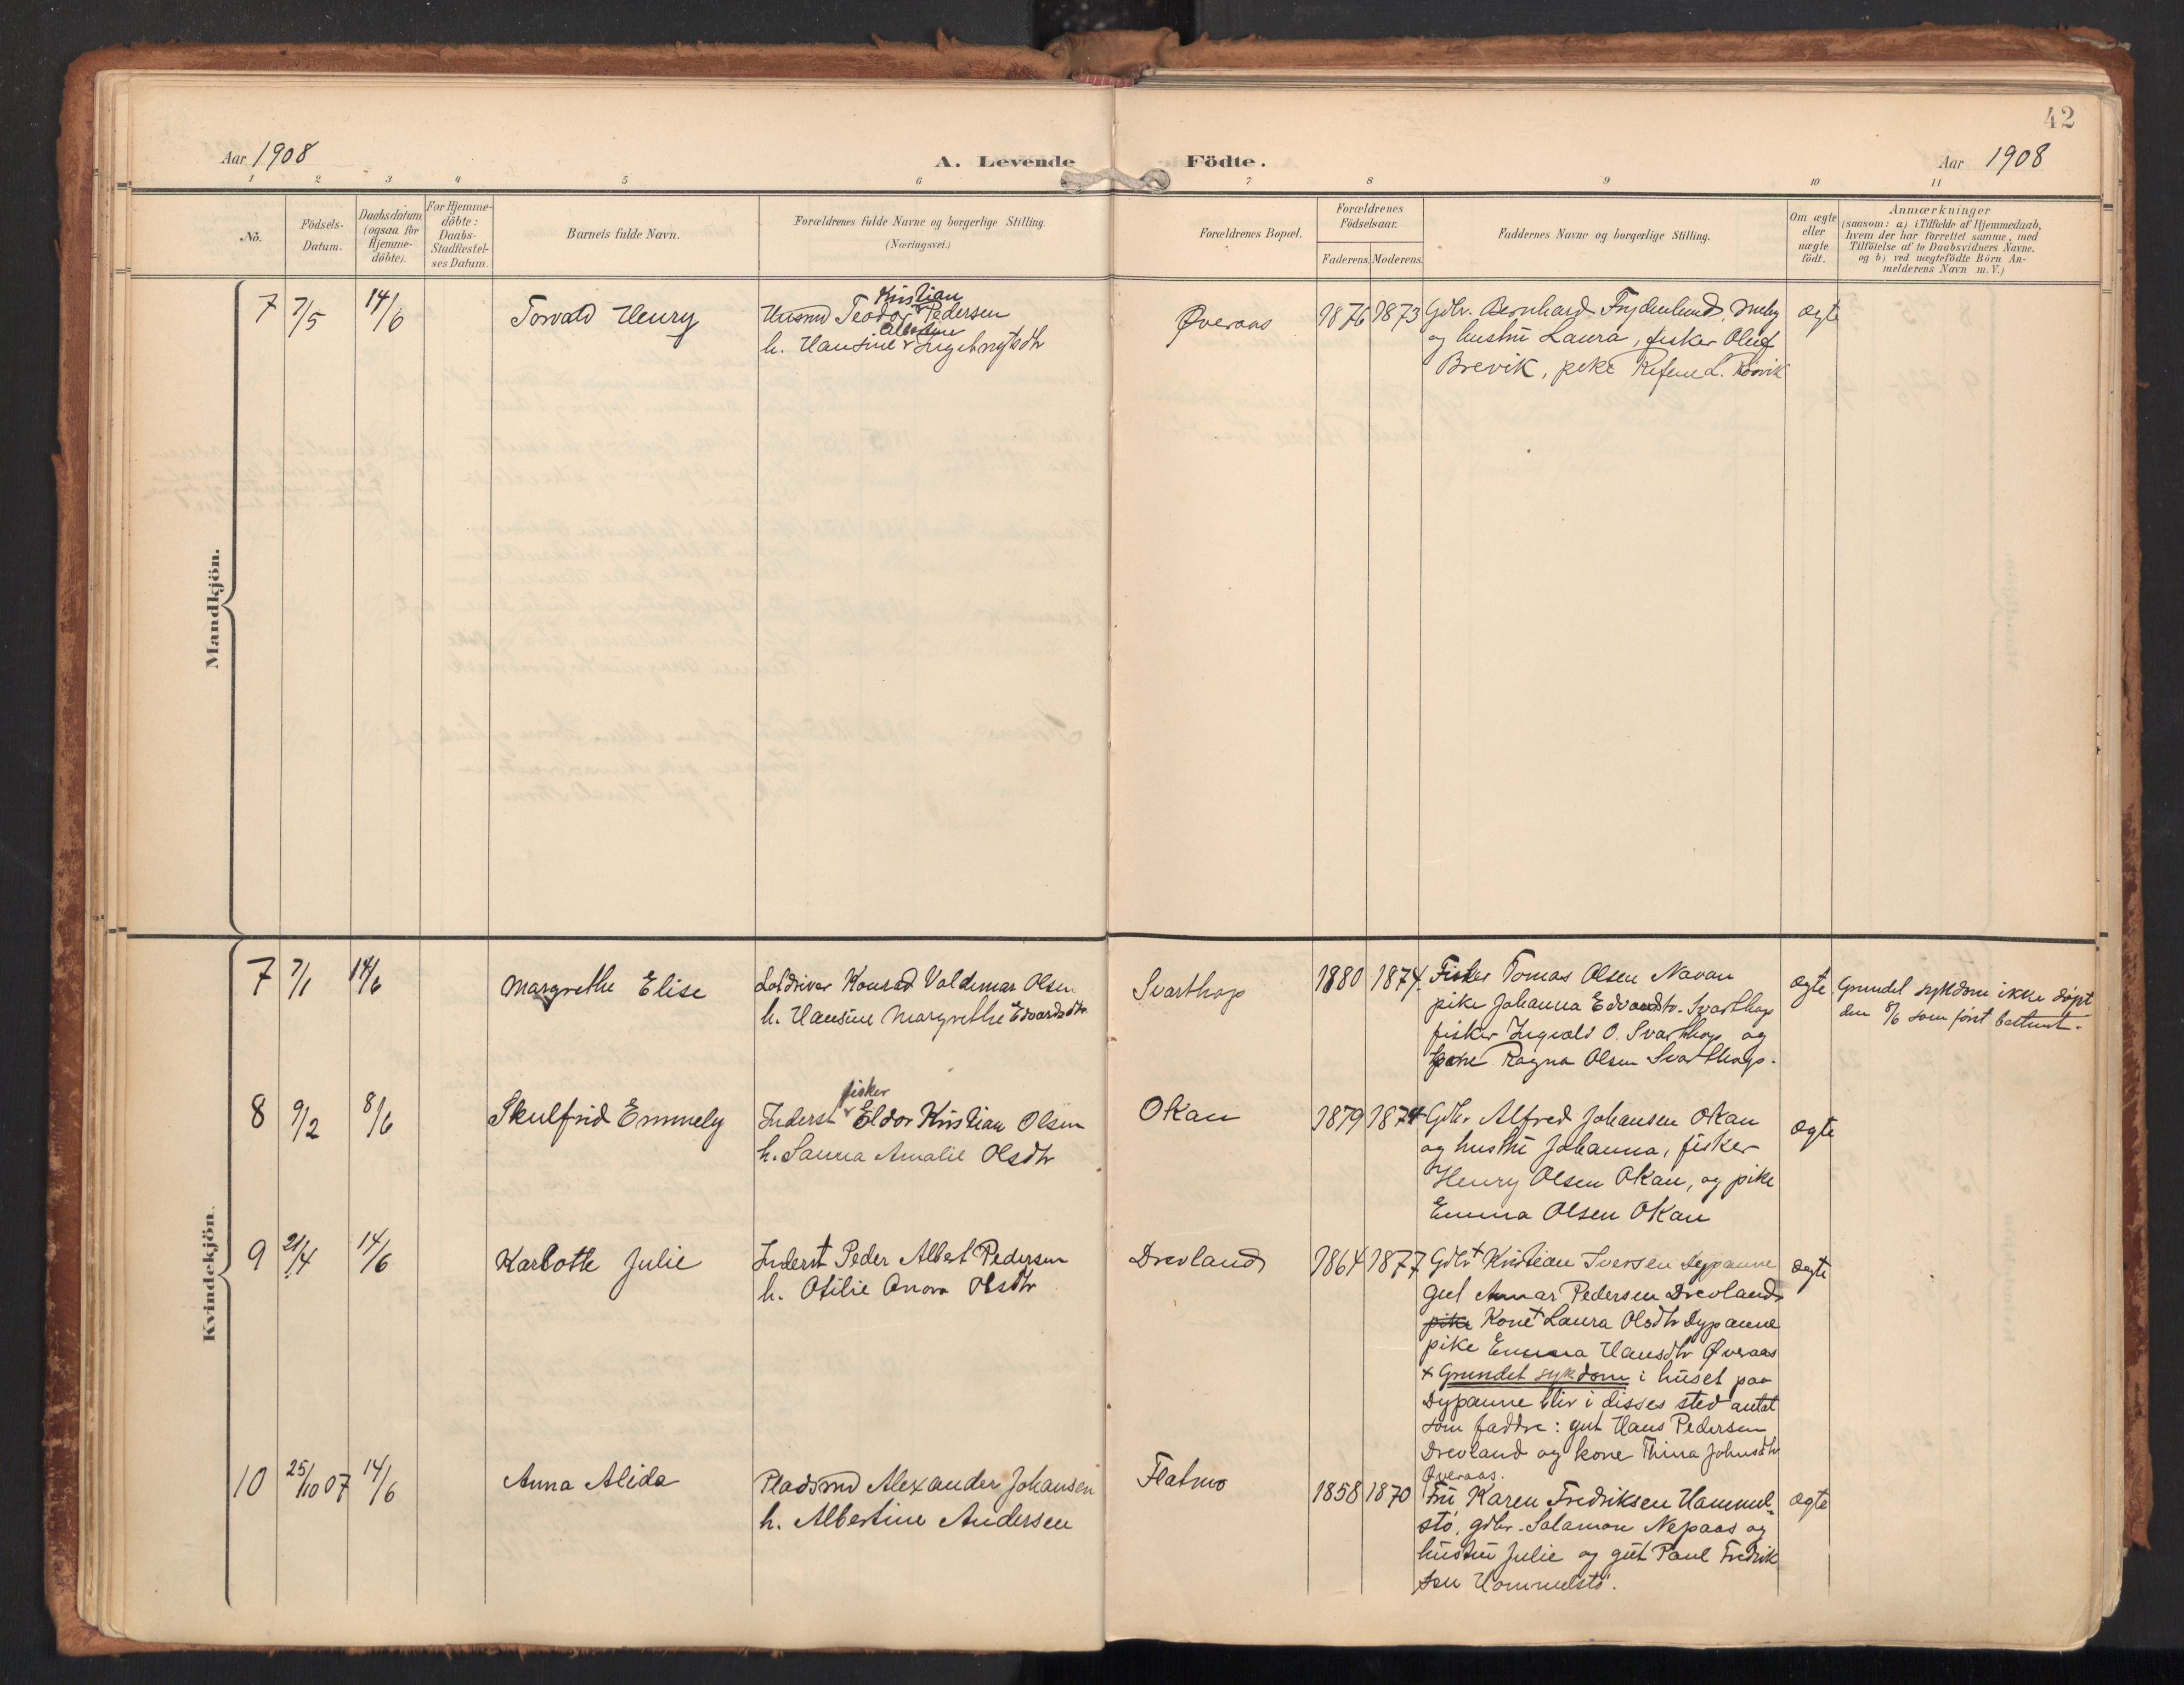 42
Aar 1908
A. Levende Födte.
Aar 1908
1 2 3 4 5 6 7 8 9 10 11
No.
Födsels-
Datum.
Daabsdatum
(ogsaa for
Hjemme-
döbte).
For Hjemme-
döbte:
Daabs-
Stadfæstel-
ses Datum.
Barnets fulde Navn.
Forældrenes fulde Navne og borgerlige Stilling.
(Næringsvei.)
Forældrenes Bopæl.
Forældrenes
Födselsaar.
Faderens. Moderens.
Faddernes Navne og borgerlige Stilling.
Om ægte
eller
uægte
födt.
Anmærkninger
(saasom: a) i Tilfælde af Hjemmedaab,
hvem der har forrettet samme, med
Tilföielse af to Daabsvidners Navne,
og b) ved uægtefödte Börn An-
melderens Navn m. V.)
Mandkjön.
7 7/5 14/6 Torvald Henry
Kristian
Husmd Teodor Pedersen
Albertine
h. Hansine Ingebrigtsdtr
Øveraas
1876 1873
Gdbr. Bernhard Frydenlund,
og hustru Laura, fisker Oluf
Brevik, pike
ægte
Kvindekjön.
7 7/1 14/6 Margrethe Elise
Konrad Valdemar Olsen
h. Hansine Margrethe Edvardsdtr
Svarthop
1880 1874
Fisker Tomas Olsen Navan
pike Johanna Edvardsdtr. Svarthop
fisker Ingvald O. Svarthop og
kone Ragna Olsen Svarthop.
ægte
Grundet sykdom ikke döpt
den 8/6 som först bestemt.
8 9/2 8/6 Skulfrid Emmely
fisker
Inderst Eldor Kristian Olsen
h. Sanna Amalie Olsdtr
Okan
1879 1874
Gdbr. Alfred Johansen Okan
og hustru Johanna, fisker
Henry Olsen Okan, og pike
Emma Olsen Okan
ægte
9 21/4 14/6 Karlotte Julie
Inderst Peder Albert Pedersen
h. Otilie Anora Olsdtr
Drevland
1864 1877
Gdbr + Kristian Iversen Dypaune
gut Annar Pedersen Drevland
pike Kone + Laura Olsdtr Dypaune
pike Emma Hansdtr Øveraas
+ Grundet sykdom i huset paa
Dypaune blir i disses sted antat
som faddre: gut Hans Pedersen
Drevland og kone Thina Johnsdtr
Øveraas.
ægte
10 25/10 07 14/6 Anna Alida
Pladsmd Alexander Johansen
h. Albertine Andersen
Flatmo
1858 1870
Fru Karen Fredriksen Hommel-
stö, gdbr. Salamon Nepaas og
hustru Julie og gut Paul Fredrik
sen Hommelstö.
ægte